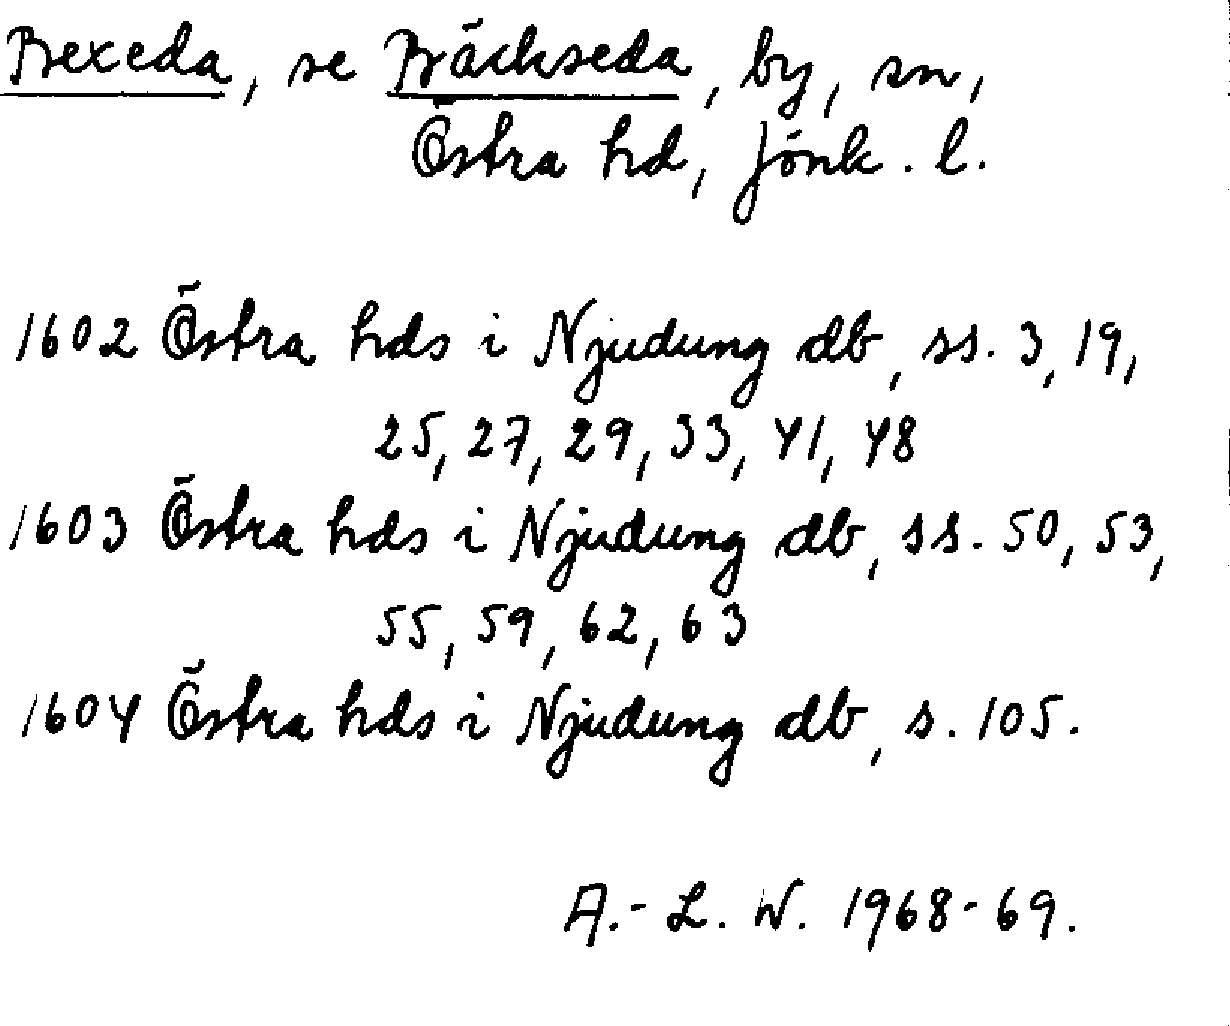 Bexeda, se Bräckseda, by, sn,
Östra hd, Jönk. l.
1602 Östra hds i Njudung db, ss. 3, 19,
25, 27, 29, 33, 41, 48
1603 Östra hds i Njudung db, ss. 50, 53,
55, 59, 62, 63
1604 Östra hds i Njudung db, s. 105.
A.-L. W. 1968-69.